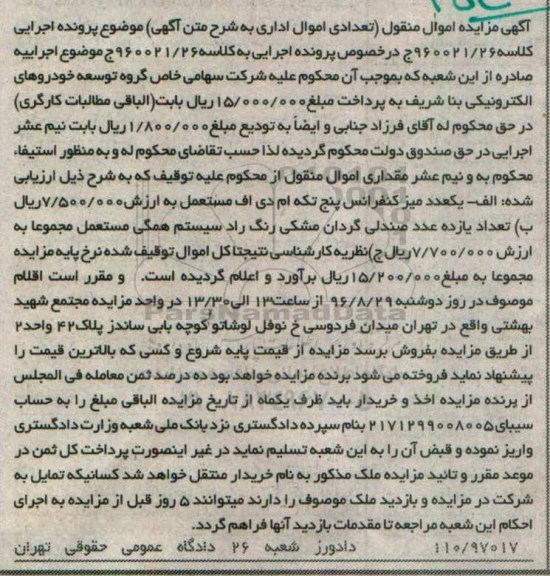 آگهی مزایده اموال منقول (تعدادی اموال اداری به شرح متن آگهی) موضوع پرونده اجرایی
کلاسه ۹۶۰۰۲۱/۲۶ج درخصوص پرونده اجرایی به کلاسه ۹۶۰۰۲۱/۲۶ج موضوع اجراییه
صادره از این شعبه که بموجب آن محکوم علیه شرکت سهامی خاص گروه توسعه خودروهای
الکترونیکی بنا شریف به پرداخت مبلغ ۱۵/۰۰۰/۰۰۰ ریال بابت (الباقی مطالبات کارگری)
در حق محکوم له آقای فرزاد جنابی و ایضاً به تودیع مبلغ ۱/۸۰۰/۰۰۰ ریال بابت نیم عشر
اجرایی در حق صندوق دولت محکوم گردیده لذا حسب تقاضای محکوم له و به منظور استیفاء،
محکوم به و نیم عشر مقداری اموال منقول از محکوم علیه توقیف که به شرح ذیل ارزیابی
شده: الف- یکعدد میز کنفرانس پنج تکه ام دی اف مستعمل به ارزش ۷/۵۰۰/۰۰۰ ریال
ب) تعداد یازده عدد صندلی گردان مشکی رنگ راد سیستم همگی مستعمل مجموعا به
ارزش ۷/۷۰۰/۰۰۰ ریال ج) نظریه کارشناسی نتیجتا کل اموال توقیف شده نرخ پایه مزایده
مجموعا به مبلغ ۱۵/۲۰۰/۰۰۰ ریال برآورد و اعلام گردیده است. و مقرر است اقلام
موصوف در روز دوشنبه ۹۶/۸/۲۹ از ساعت ۱۳ الی ۱۳/۳۰ در واحد مزایده مجتمع شهید
بهشتی واقع در تهران میدان فردوسی خ نوفل لوشاتو کوچه بابی ساندز پلاک ۴۲ واحد ۲
از طریق مزایده بفروش برسد مزایده از قیمت پایه شروع و کسی که بالاترین قیمت را
پیشنهاد نماید فروخته می شود برنده مزایده خواهد بود ده درصد ثمن معامله فی المجلس
از برنده مزایده اخذ و خریدار باید ظرف یکماه از تاریخ مزایده الباقی مبلغ را به حساب
سیبای ۲۱۷۱۲۹۹۰۰۸۰۰۵ بنام سپرده دادگستری نزد بانک ملی شعبه وزارت دادگستری
واریز نموده و قبض آن را به این شعبه تسلیم نماید در غیر اینصورت پرداخت کل ثمن در
موعد مقرر و تائید مزایده ملک مذکور به نام خریدار منتقل خواهد شد کسانیکه تمایل به
شرکت در مزایده و بازدید ملک موصوف را دارند میتوانند ۵ روز قبل از مزایده به اجرای
احکام این شعبه مراجعه تا مقدمات بازدید آنها فراهم گردد.
۱۱۰/۹۷۰۱۷ دادورز شعبه ۲۶ دادگاه عمومی حقوقی تهران
ParsNamadData